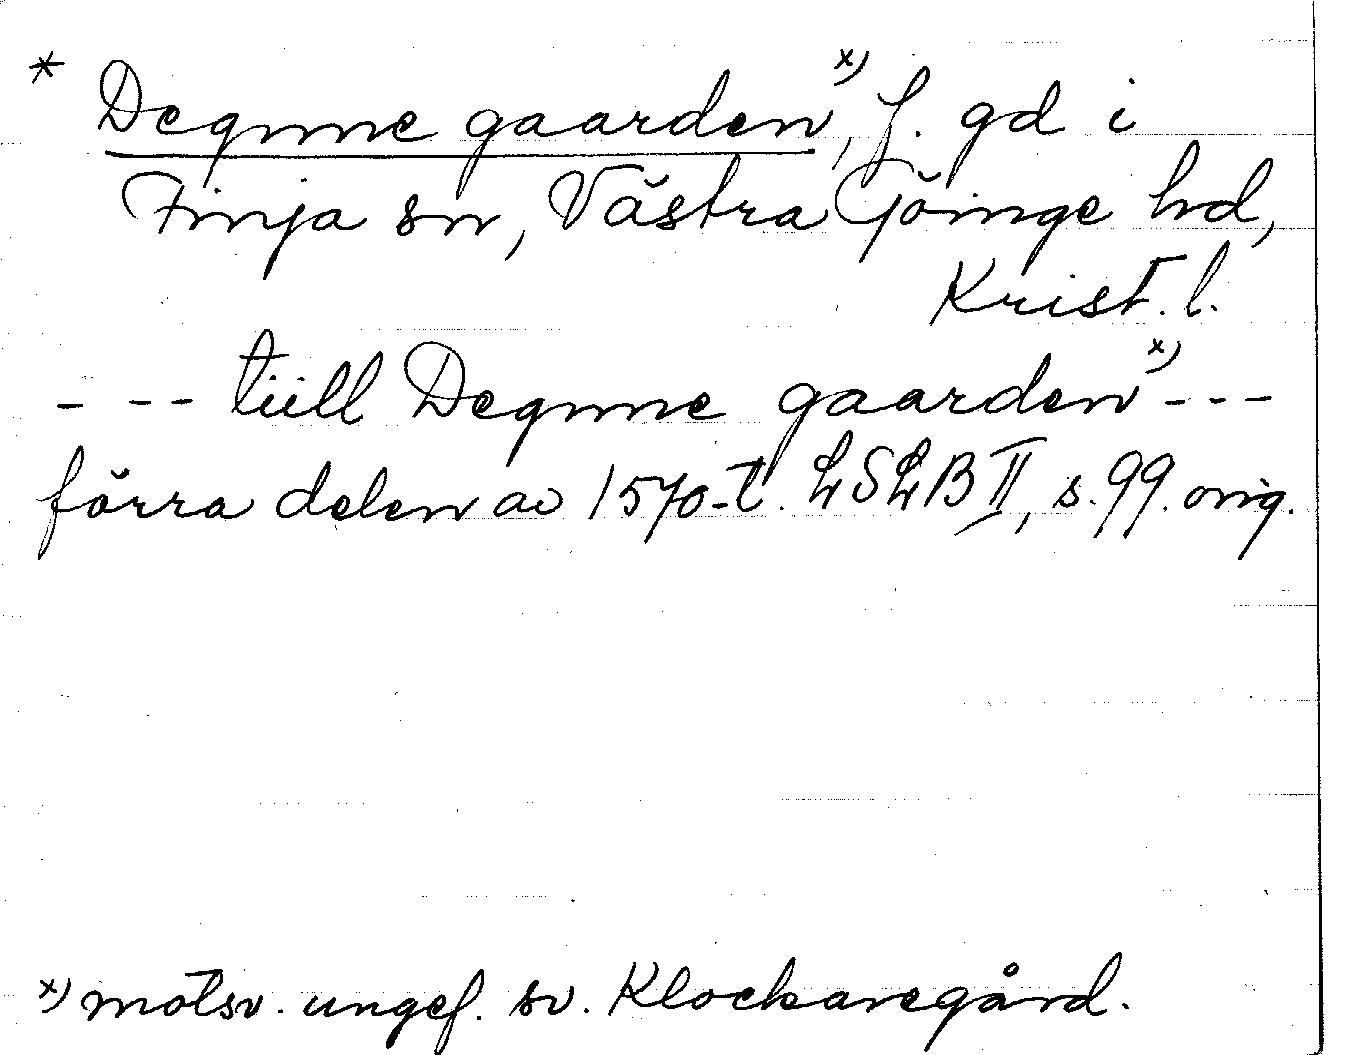 * Degnne gaarden x), f. gd i
Finja sn, Västra Göinge hd,
Krist. l.
- -- tiill Degnne gaarden x) ---
förra delen av 1570-t. LSLB II, s. 99. orig.
x) motsv. ungef. sv. Klockaregård.